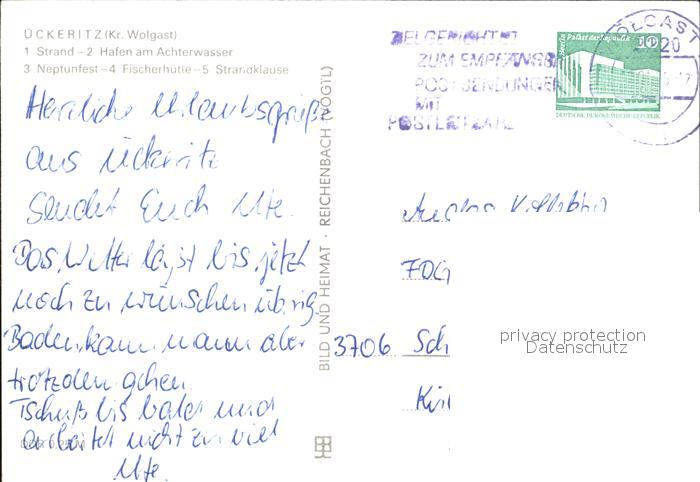 ÜCKERITZ (Kr. Wolgast)
1 Strand – 2 Hafen am Achterwasser
3 Neptunfest – 4 Fischerhütte – 5 Strandklause
Herzliche Urlaubsgrüße
aus Ückeritz
Sendet Euch Ute.
Das Wetter läßt bis jetzt
noch zu wünschen übrig.
Baden kann mann aber
trotzdem gehen.
Tschüß bis bald und
arbeitet nicht zu viel
Ute.
BILD UND HEIMAT · REICHENBACH (VOGTL)
ZUM EMPFANG
POSTSENDUNGEN
MIT
POSTLEITZAHL
WOLGAST
2220
Berlin Palast der Republik
10
DEUTSCHE DEMOKRATISCHE REPUBLIK
3706 Sch
privacy protection
Datenschutz